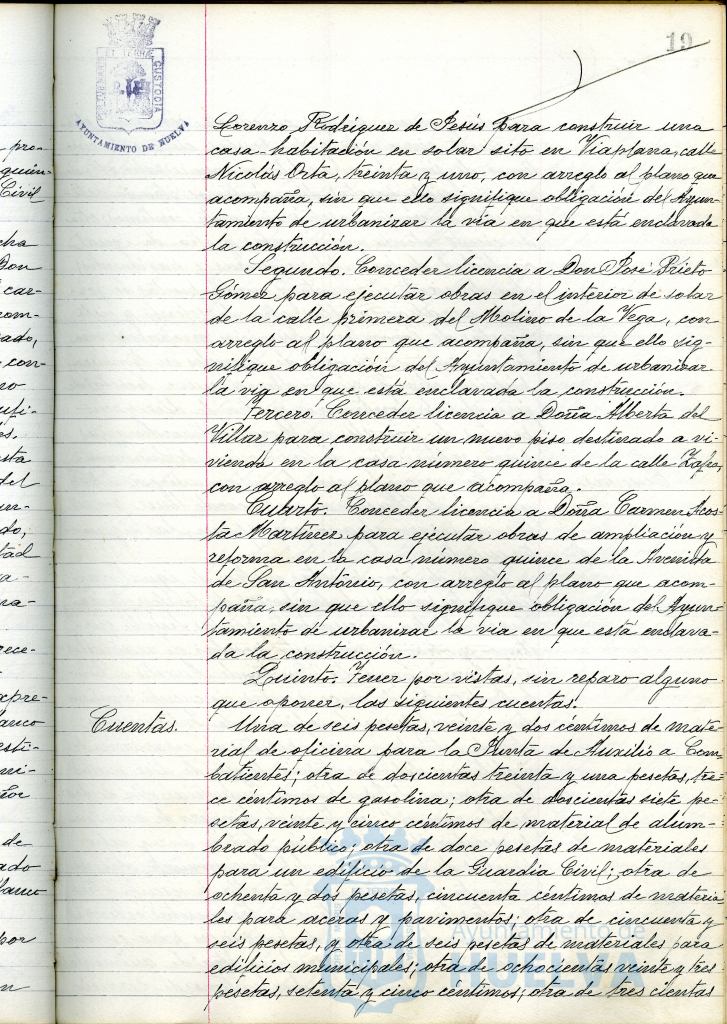 19
EL TERRAE
CUSTODIA
AYUNTAMIENTO DE HUELVA
Lorenzo Rodríguez de Jesús para construir una
casa-habitación en solar sito en Viaplana, calle
Nicolás Orta, treinta y uno, con arreglo al plano que
acompaña, sin que ello signifique obligación del Ayun-
tamiento de urbanizar la vía en que está enclavada
la construcción.
Segundo. Conceder licencia a Don José Prieto
Gómez para ejecutar obras en el interior de solar
de la calle primera del Molino de la Vega, con
arreglo al plano que acompaña, sin que ello sig-
nifique obligación del Ayuntamiento de urbanizar
la vía en que está enclavada la construcción.
Tercero. Conceder licencia a Doña Alberta del
Villar para construir un nuevo piso destinado a vi-
vienda en la casa número quince de la calle Zafra,
con arreglo al plano que acompaña.
Cuarto. Conceder licencia a Doña Carmen Acos-
ta Martínez para ejecutar obras de ampliación y
reforma en la casa número quince de la Avenida
de San Antonio, con arreglo al plano que acom-
paña, sin que ello signifique obligación del Ayun-
tamiento de urbanizar la vía en que está enclava-
da la construcción.
Quinto. Tener por vistas, sin reparo alguno
que oponer, las siguientes cuentas.
Cuentas.
Una de seis pesetas, veinte y dos céntimos de mate-
rial de oficina para la Junta de Auxilio a Com-
batientes; otra de doscientas treinta y una pesetas, tre-
ce céntimos de gasolina; otra de doscientas siete pe-
setas, veinte y cinco céntimos de material de alum-
brado público; otra de doce pesetas de materiales
para un edificio de la Guardia Civil; otra de
ochenta y dos pesetas, cincuenta céntimos de materia-
les para aceras y pavimentos; otra de cincuenta y
seis pesetas, y otra de seis pesetas de materiales para
edificios municipales; otra de ochocientas veinte y tres
pesetas, setenta y cinco céntimos; otra de tres cientas
Ayuntamiento de
HUELVA